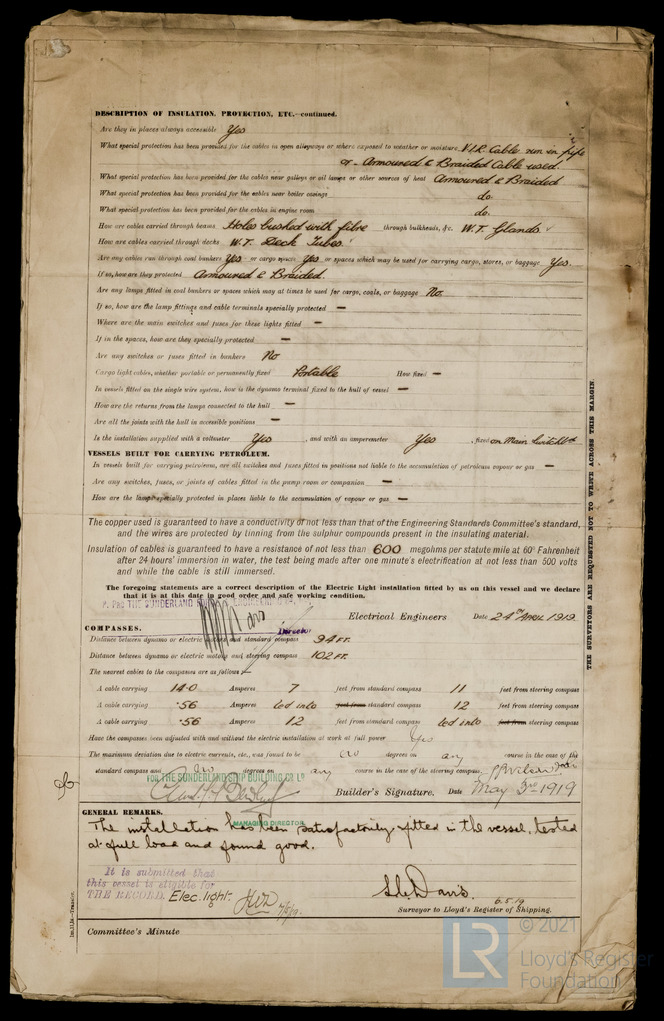 DESCRIPTION OF INSULATION, PROTECTION, ETC.—continued.
Are they in places always accessible Yes
What special protection has been provided for the cables in open alleyways or where exposed to weather or moisture V.I.R. Cable run in pipe
or Armoured & Braided Cable used.
What special protection has been provided for the cables near galleys or oil lamps or other sources of heat Armoured & Braided
What special protection has been provided for the cables near boiler casings do.
What special protection has been provided for the cables in engine room do.
How are cables carried through beams Holes bushed with fibre through bulkheads, &c. W.T. Glands.
How are cables carried through decks W.T. Deck Tubes.
Are any cables run through coal bunkers Yes or cargo spaces Yes or spaces which may be used for carrying cargo, stores, or baggage Yes.
If so, how are they protected Armoured & Braided.
Are any lamps fitted in coal bunkers or spaces which may at times be used for cargo, coals, or baggage No.
If so, how are the lamp fittings and cable terminals specially protected —
Where are the main switches and fuses for these lights fitted —
If in the spaces, how are they specially protected —
Are any switches or fuses fitted in bunkers No
Cargo light cables, whether portable or permanently fixed Portable How fixed —
In vessels fitted on the single wire system, how is the dynamo terminal fixed to the hull of vessel —
How are the returns from the lamps connected to the hull —
Are all the joints with the hull in accessible positions —
Is the installation supplied with a voltmeter Yes , and with an amperemeter Yes , fixed on Main Switchbd
VESSELS BUILT FOR CARRYING PETROLEUM.
In vessels built for carrying petroleum, are all switches and fuses fitted in positions not liable to the accumulation of petroleum vapour or gas —
Are any switches, fuses, or joints of cables fitted in the pump room or companion —
How are the lamps specially protected in places liable to the accumulation of vapour or gas —
The copper used is guaranteed to have a conductivity of not less than that of the Engineering Standards Committee's standard,
and the wires are protected by tinning from the sulphur compounds present in the insulating material.
Insulation of cables is guaranteed to have a resistance of not less than 600 megohms per statute mile at 60° Fahrenheit
after 24 hours' immersion in water, the test being made after one minute's electrification at not less than 500 volts
and while the cable is still immersed.
The foregoing statements are a correct description of the Electric Light installation fitted by us on this vessel and we declare
that it is at this date in good order and safe working condition.
THE SUNDERLAND
Electrical Engineers Date 24th April 1919
COMPASSES.
Distance between dynamo or electric motors and standard compass 94 FT.
Distance between dynamo or electric motors and steering compass 102 FT.
The nearest cables to the compasses are as follows:—
A cable carrying 14.0 Amperes 7 feet from standard compass 11 feet from steering compass
A cable carrying .56 Amperes led into feet from standard compass 12 feet from steering compass
A cable carrying .56 Amperes 12 feet from standard compass led into feet from steering compass
Have the compasses been adjusted with and without the electric installation at work at full power Yes
The maximum deviation due to electric currents, etc., was found to be degrees on any course in the case of the
standard compass and degrees on any course in the case of the steering compass.
FOR THE SUNDERLAND SHIP BUILDING CO. LD
Builder's Signature. Date May 3rd 1919
MANAGING DIRECTOR
GENERAL REMARKS.
The installation has been satisfactorily fitted in the vessel, tested
at full load and found good.
It is submitted that
this vessel is eligible for
THE RECORD. Elec. light.
6.5.19
Surveyor to Lloyd's Register of Shipping.
Committee's Minute
THE SURVEYORS ARE REQUESTED NOT TO WRITE ACROSS THIS MARGIN.
© 2021
LR
Lloyd's Register
Foundation